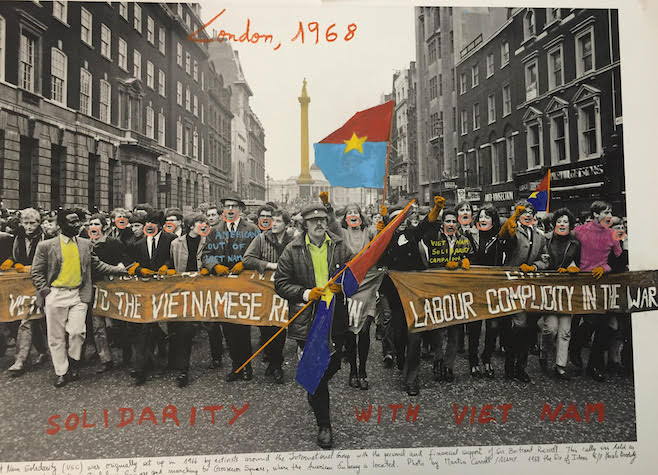 London, 1968
AMERICAN'S
OUT OF
VIET NAM
VIETNAM
SOLIDARITY
CAMPAIGN
TO THE VIETNAMESE RE
LABOUR COMPLICITY IN THE WAR
SOLIDARITY WITH VIET NAM
Nam Solidarity (VSC) was originally set up in 1966 by activists around the International Group with the personal and financial support of Sir Bertrand Russell. This rally was held in
and marching to Grosvenor Square, where the American Embassy is located. Photo by Martin 1968 the Fire of Ideas Brodsky